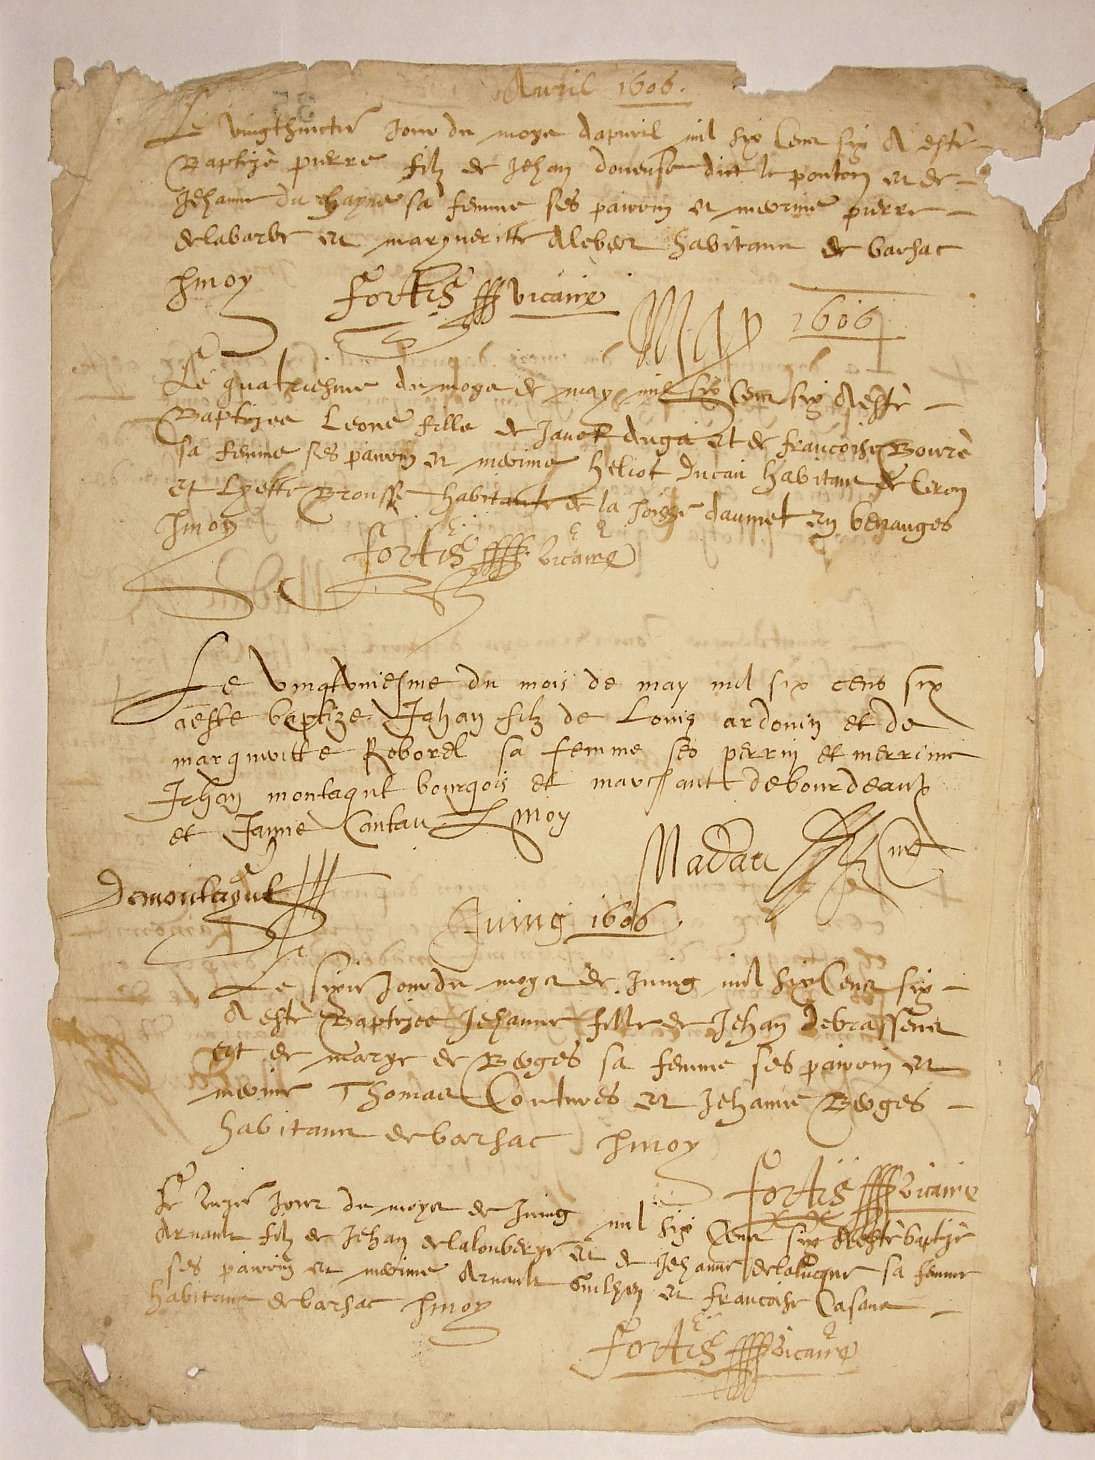 Avril 1606.
Le vingthuictie Jour du moys dapvril mil six Cent six A esté
Baptizé pierre filz de Jehan donense dict le ponton et de
Jehanne du hayne sa femme ses pairrin et merrine pierre
delabarbe et margueritte habitans de barsac
pmoy Fortis vicaire
May 1606
Le quatriesme du moys de may mil six Cent six A esté
Baptizee Leone fille de Janot et de francoise Bouré
sa femme ses pairrin et merrine heliot ducau habitant de Ceron
et Lyette Brousse habitante de la en benauges
pmoy
Fortis vicaire
Le vingtuniesme du mois de may mil six cens six
a este baptize Jehan filz de Louis ardouin et de
margueritte Roborel sa femme ses perrin et merrine
Jehan montagut bourgois et marchant de bourdeaux
et Janne Cantau pmoy
Madau Curé
Demontagut
Juing 1606
Le sixie Jour du moys de Juing mil six Cent six
A esté Baptizee Jehanne fille de Jehan
et de marye de Boges sa femme ses pairrin et
merine Thomas Coutures et Jehanne Boges
habitans de barsac pmoy
Fortis vicaire
Le Jour du moys de Juing mil six Cent six A esté baptizé
Arnault filz de Jehan delalouberye et de Jehanne sa femme
ses pairrin et merrine Arnault Guilhem et francoise Casane
habitans de barsac pmoy
Fortis vicaire